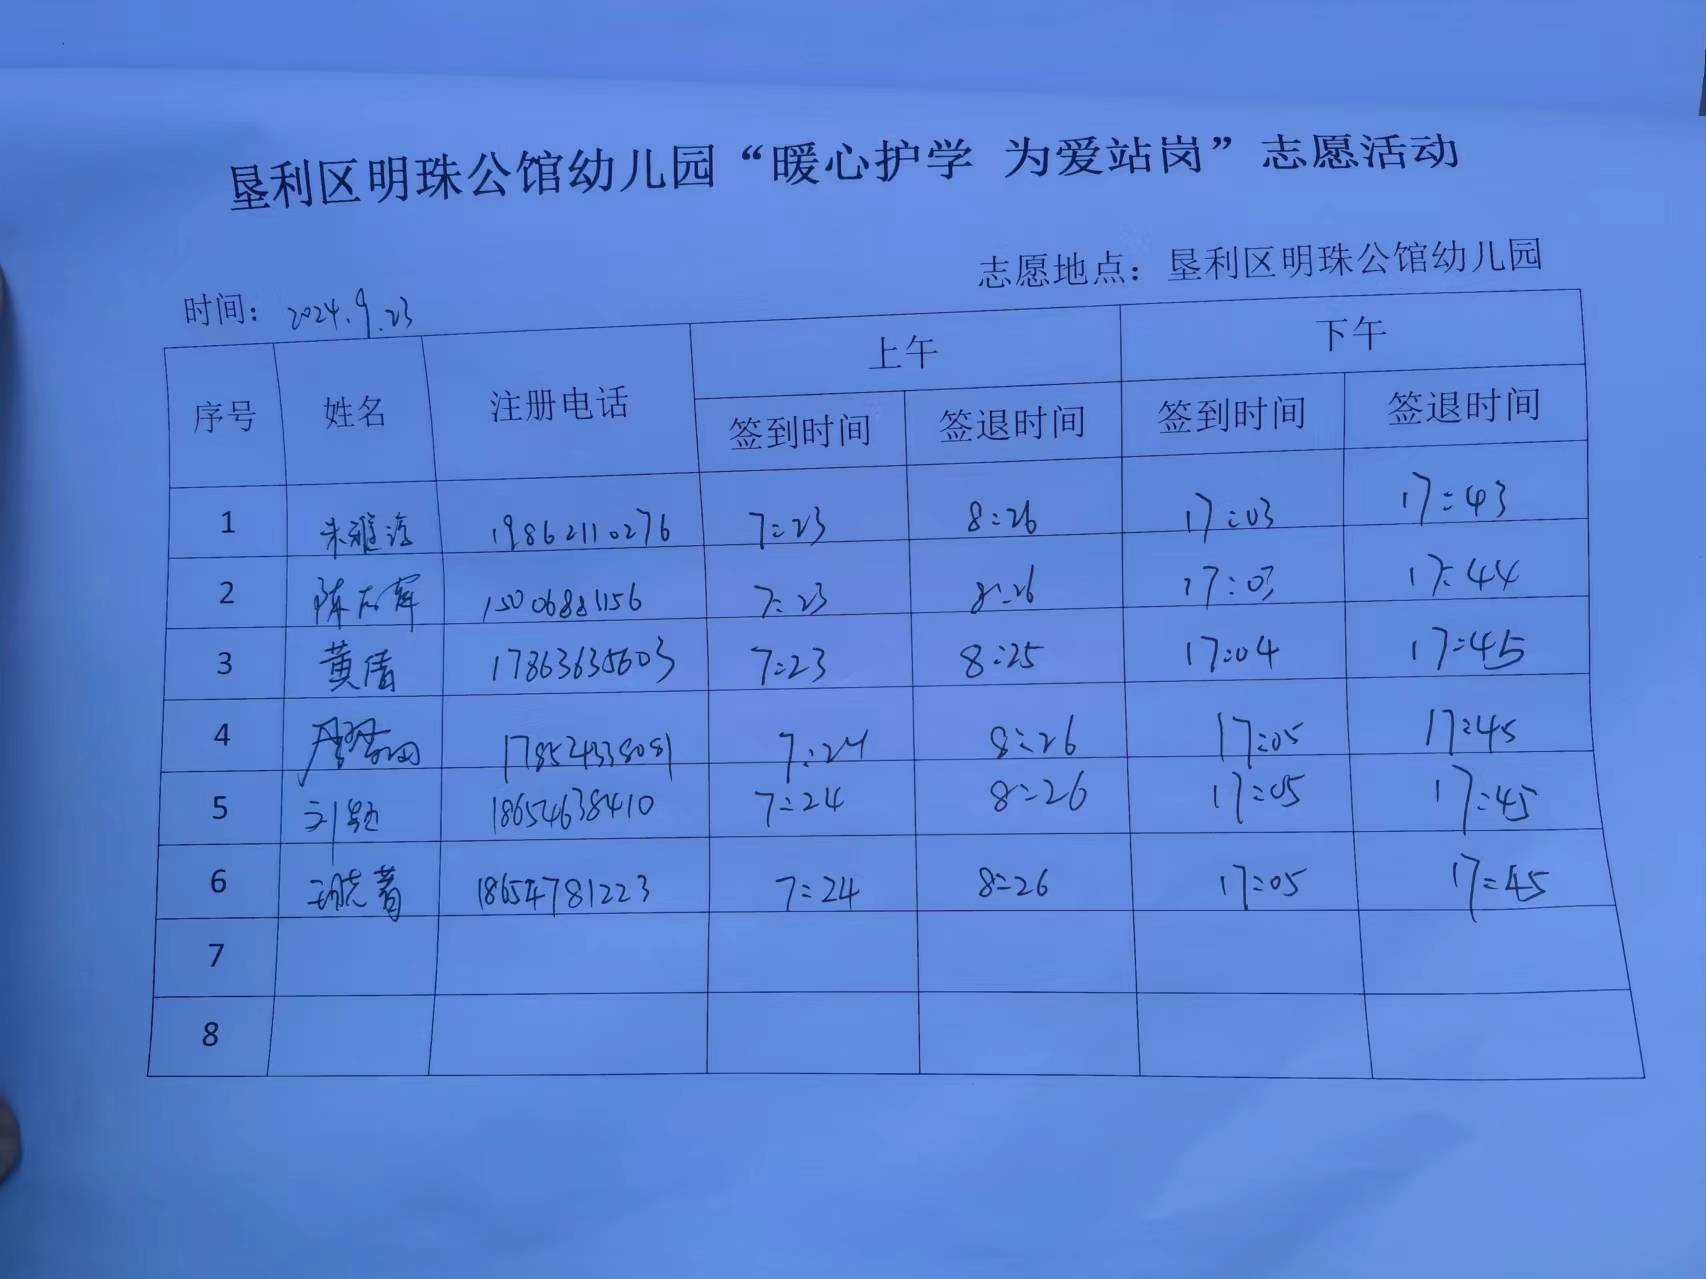 垦利区明珠公馆幼儿园“暖心护学 为爱站岗”志愿活动
时间：2024.9.23 志愿地点：垦利区明珠公馆幼儿园
序号 姓名 注册电话 上午 下午
签到时间 签退时间 签到时间 签退时间
1 19862110276 7:23 8:26 17:03 17:43
2 陈 15006881156 7:23 8:26 17:03 17:44
3 黄倩 17863635603 7:23 8:25 17:04 17:45
4 7:24 8:26 17:05 17:45
5 刘 18654638410 7:24 8:26 17:05 17:45
6 18654781223 7:24 8:26 17:05 17:45
7
8